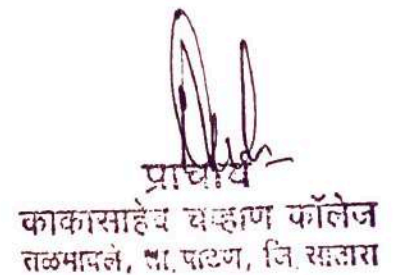 प्राचार्य
काकासाहेब चव्हाण कॉलेज
तळमावले, ता. पाटण, जि. सातारा